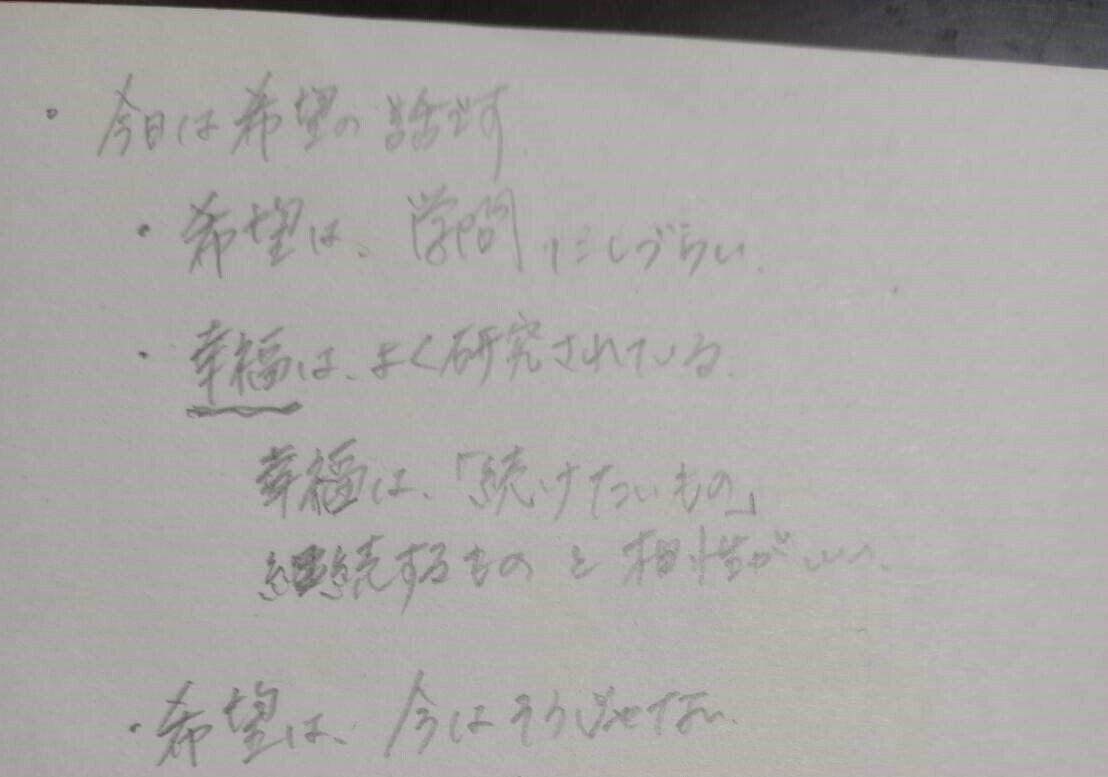 ・今日は希望の話です.
・希望は、学問にしづらい.
・幸福は、よく研究されている.
幸福は、「続けたいもの」
継続するものと相性がいい.
・希望は、今はそうじゃない.